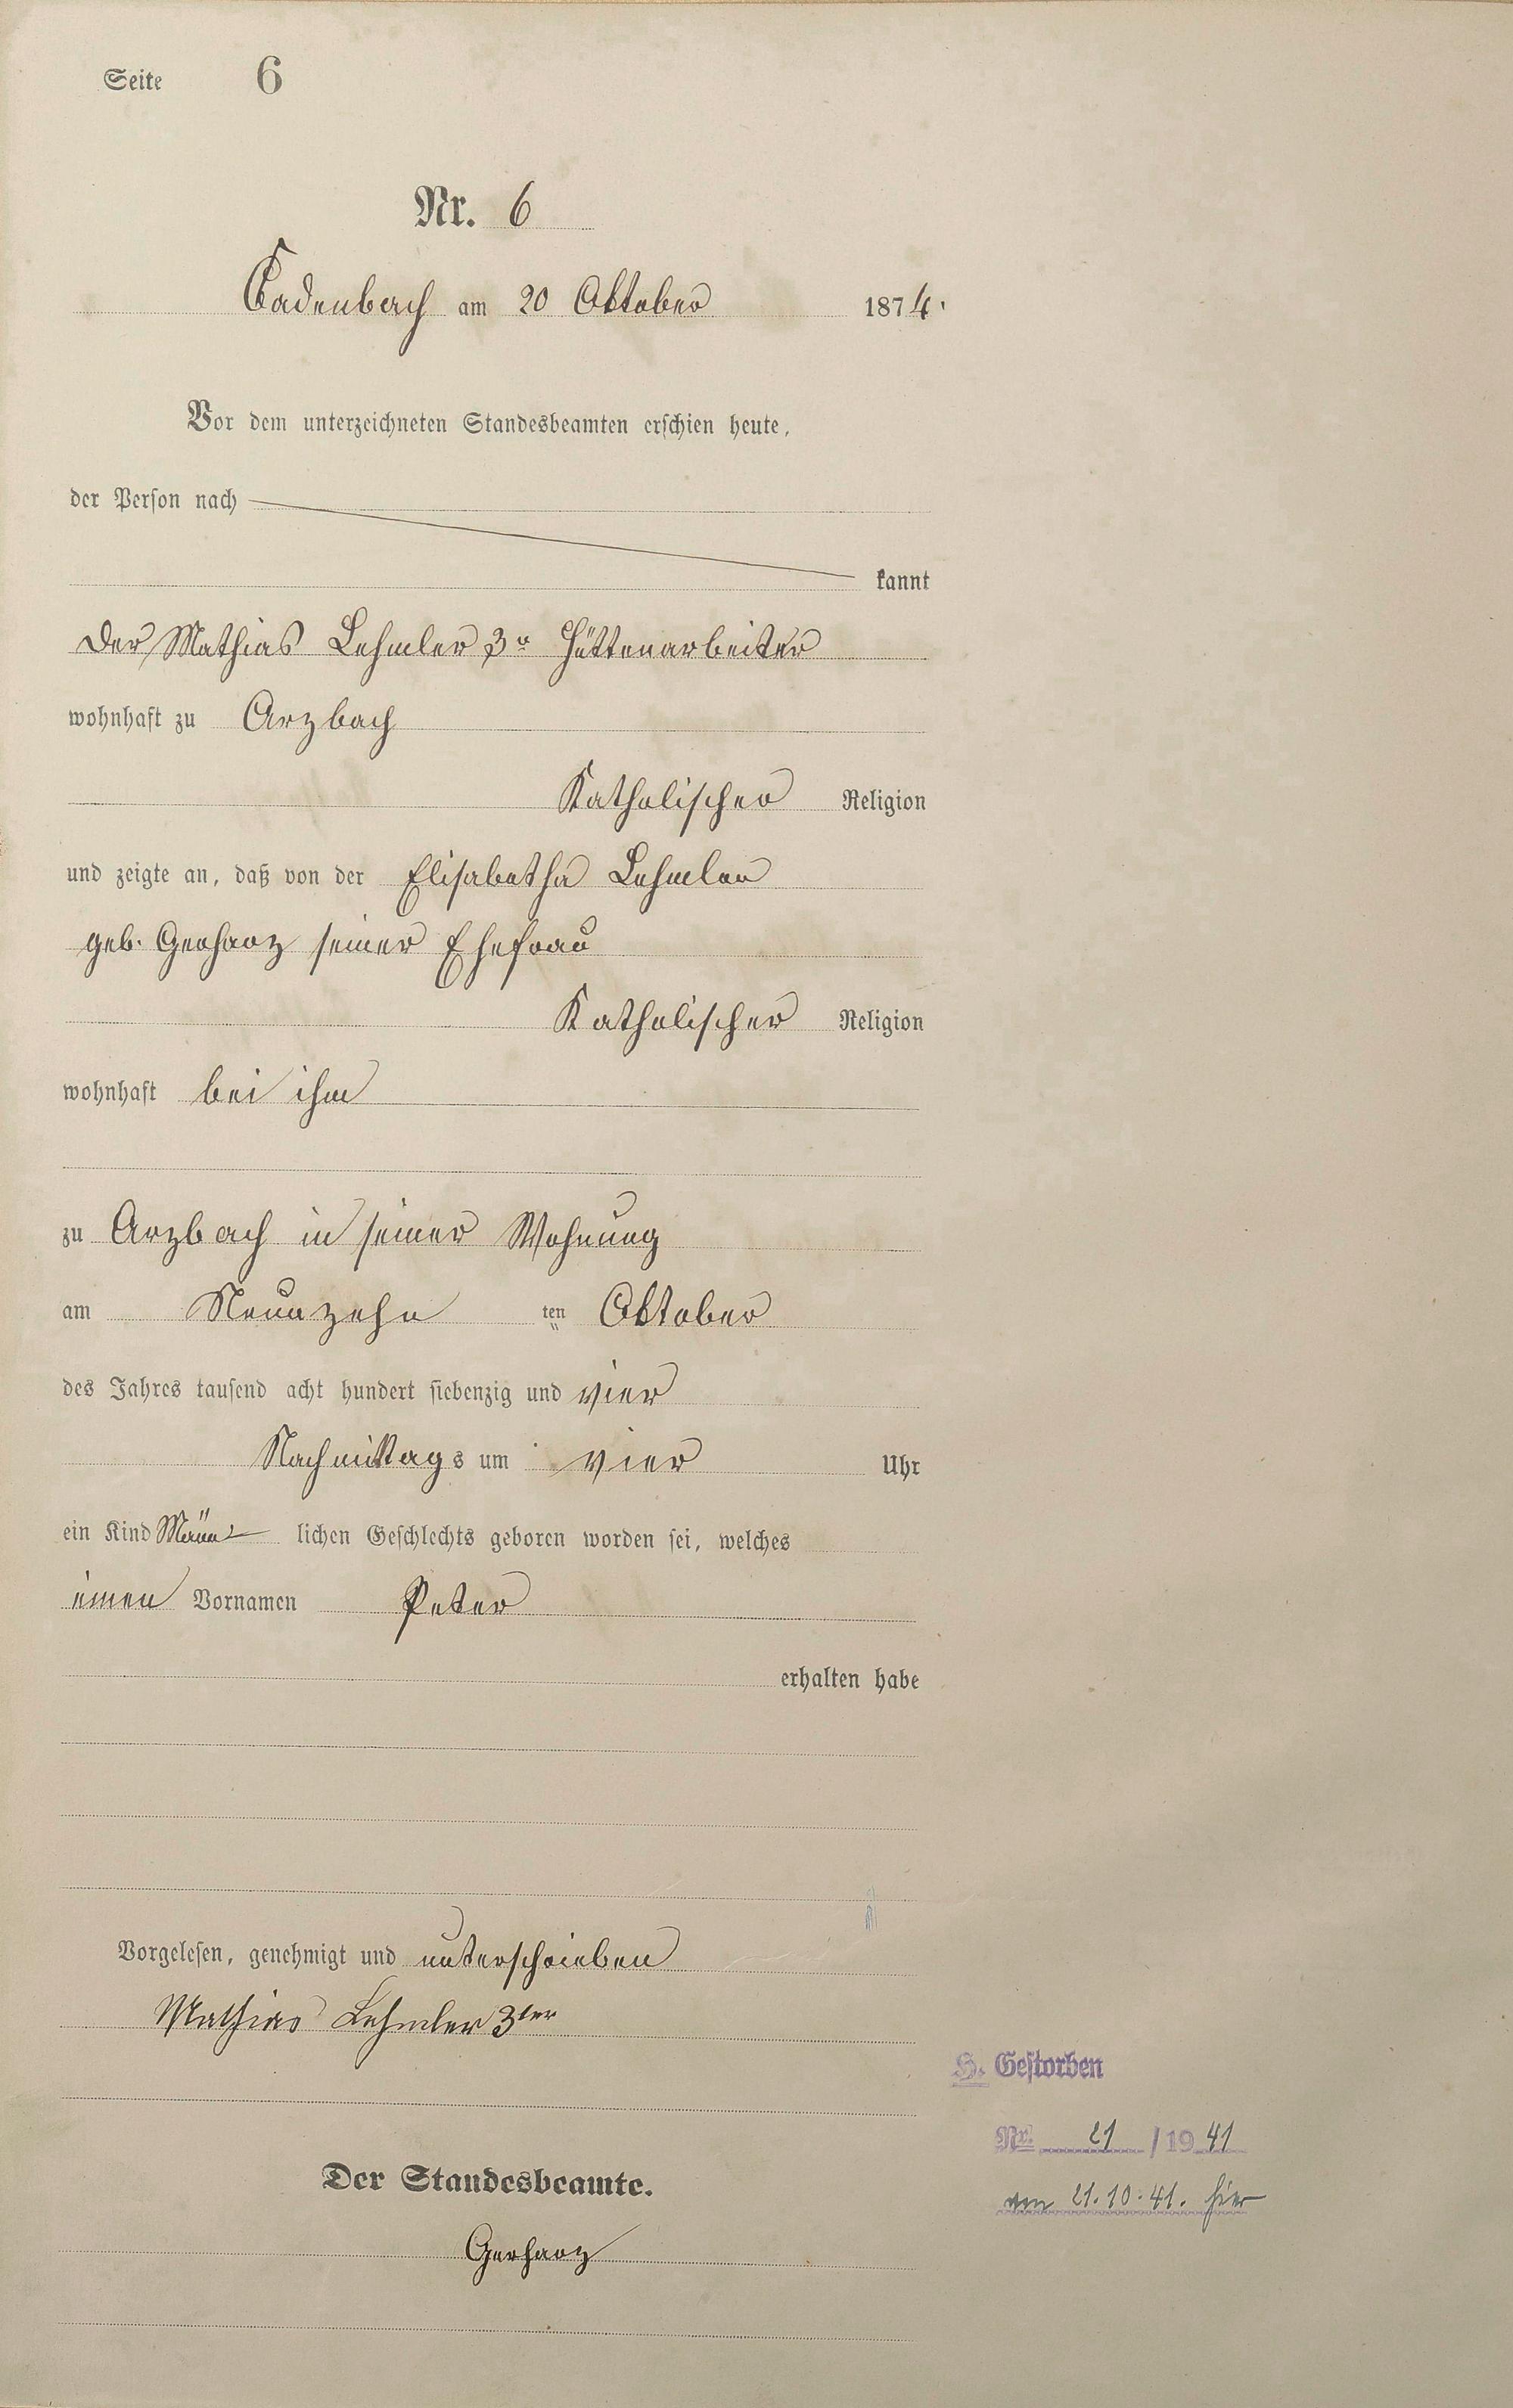 Seite 6
Nr. 6
Cadenbach am 20 Oktober 1874.
Vor dem unterzeichneten Standesbeamten erschien heute,
der Person nach
kannt
der Mathias Lehmler 3r Hüttenarbeiter
wohnhaft zu Arzbach
Katholischer Religion
und zeigte an, daß von der Elisabetha Lehmler
geb. Gerharz seiner Ehefrau
Katholischer Religion
wohnhaft bei ihm
zu Arzbach in seiner Wohnung
am Neunzehn ten Oktober
des Jahres tausend acht hundert siebenzig und vier
Nachmittags um vier Uhr
ein Kind Männ- lichen Geschlechts geboren worden sei, welches
einen Vornamen Peter
erhalten habe
Vorgelesen, genehmigt und unterschrieben
Mathias Lehmler 3ter
S. Gestorben
Nr. 21 / 19 41
von 21.10.41. hier
Der Standesbeamte.
Gerharz